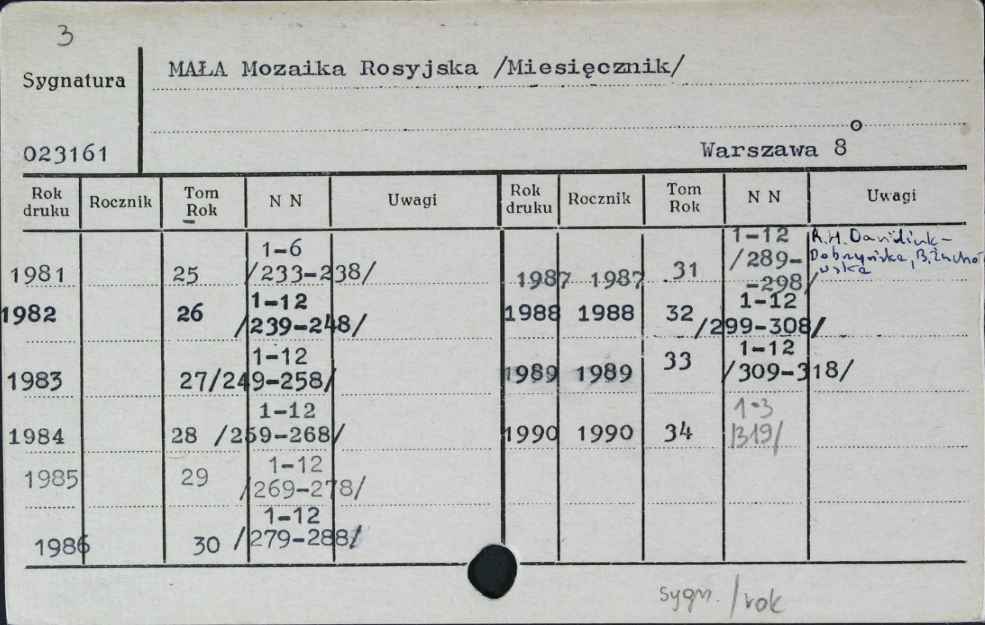 3
Sygnatura
MAŁA Mozaika Rosyjska /Miesięcznik/
023161
Warszawa 8°
Rok druku Rocznik Tom Rok N N Uwagi Rok druku Rocznik Tom Rok N N Uwagi
1981 25 1-6 /233-238/
1982 26 1-12 /239-248/
1983 27 1-12 /249-258/
1984 28 1-12 /259-268/
1985 29 1-12 /269-278/
1986 30 1-12 /279-288/
1987 1987 31 1-12 /289--298/
1988 1988 32 1-12 /299-308/
1989 1989 33 1-12 /309-318/
1990 1990 34 1-3 /319/
sygn. /rok